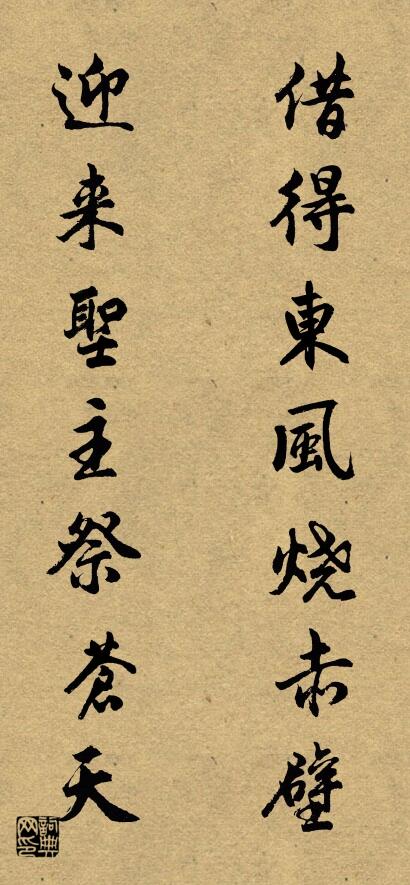 借得東風烧赤壁
迎来聖主祭蒼天
詞典网印